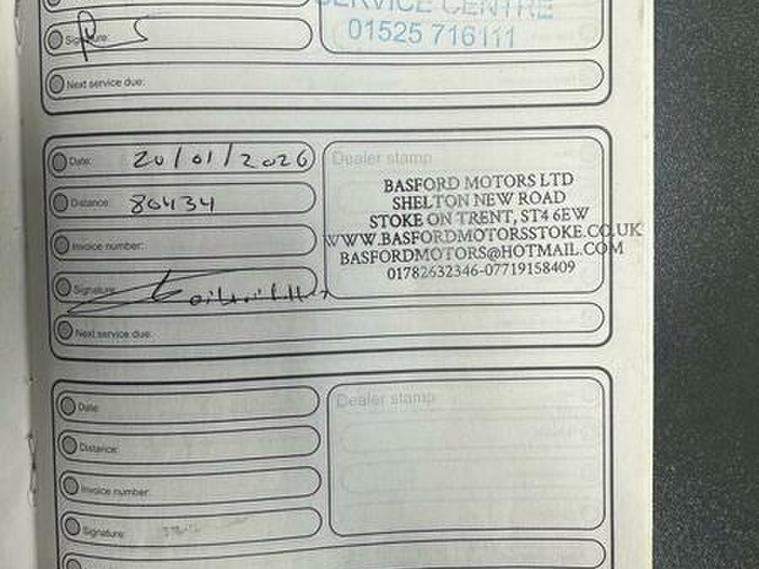 SERVICE CENTRE
Signature:
01525 716111
Next service due:
Date: 20/01/2026
Dealer stamp
BASFORD MOTORS LTD
Distance: 80434
SHELTON NEW ROAD
STOKE ON TRENT, ST4 6EW
Invoice number:
WWW.BASFORDMOTORSSTOKE.CO.UK
BASFORDMOTORS@HOTMAIL.COM
Signature:
01782632346-07719158409
Next service due:
Date:
Dealer stamp
Distance:
Invoice number:
Signature: